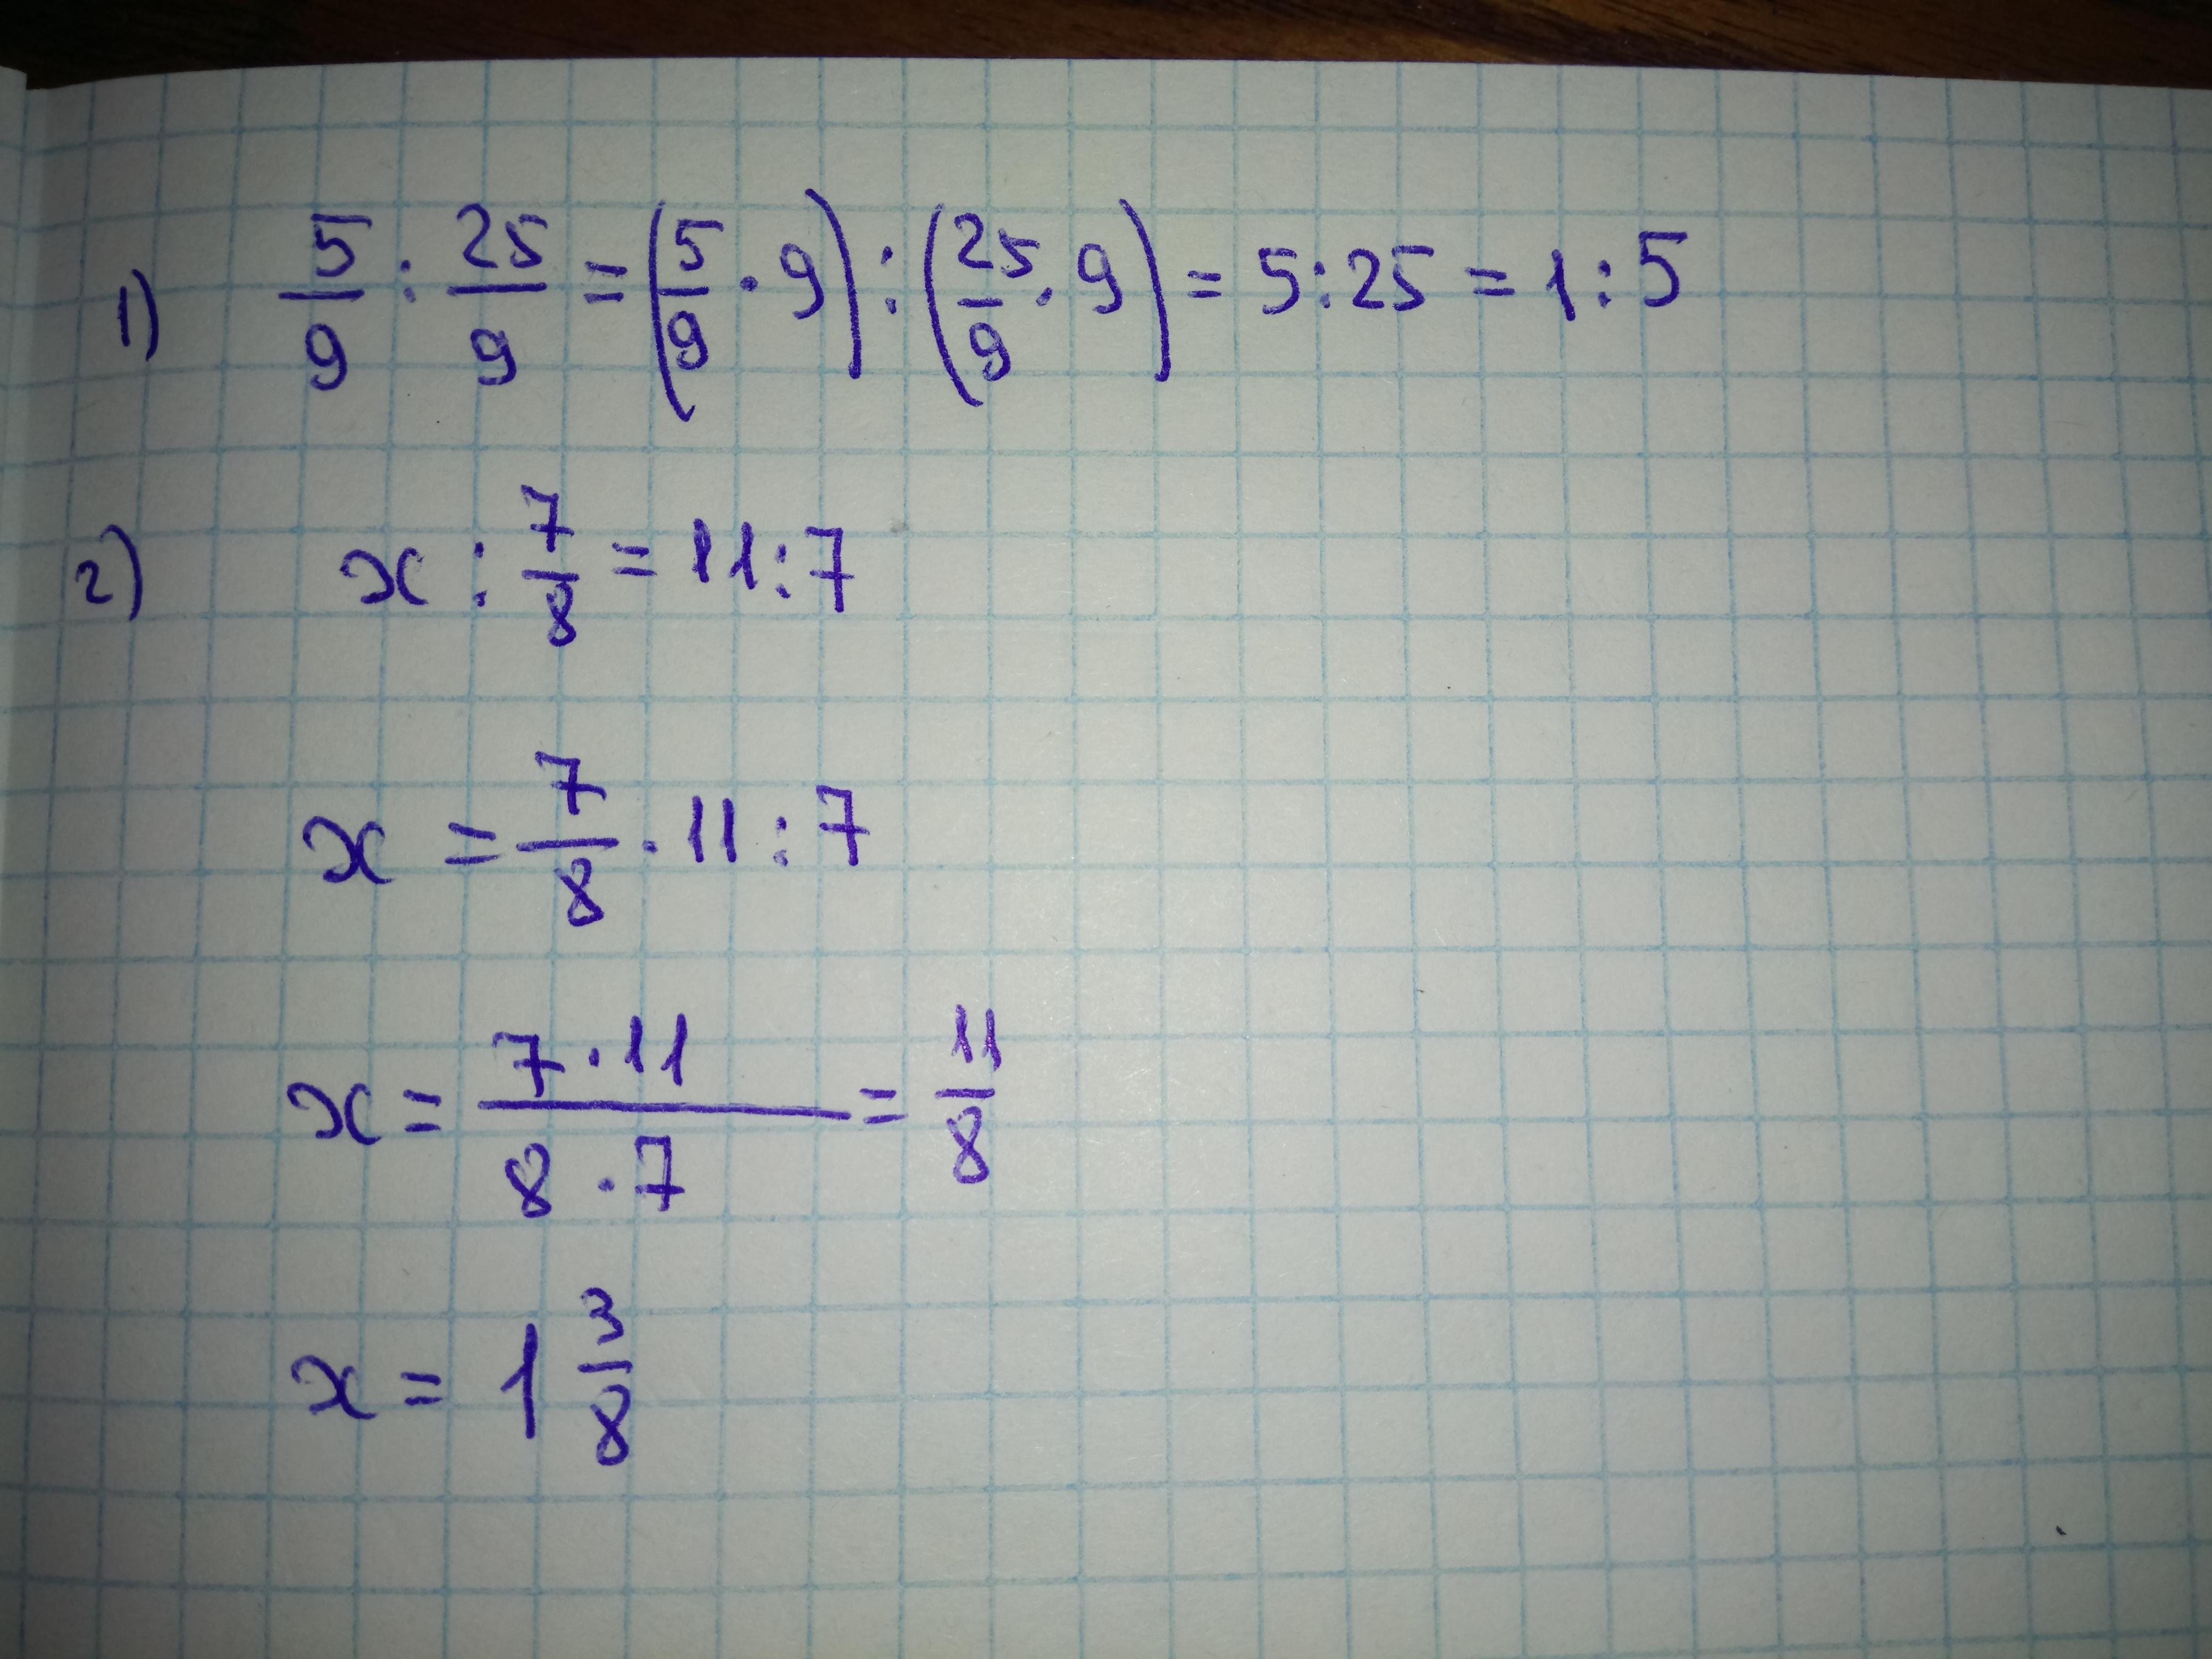 1) 5/9 : 25/9 = (5/9 · 9) : (25/9 · 9) = 5:25 = 1:5
2) x : 7/8 = 11:7
x = 7/8 · 11:7
x = 7·11/8·7 = 11/8
x = 1 3/8